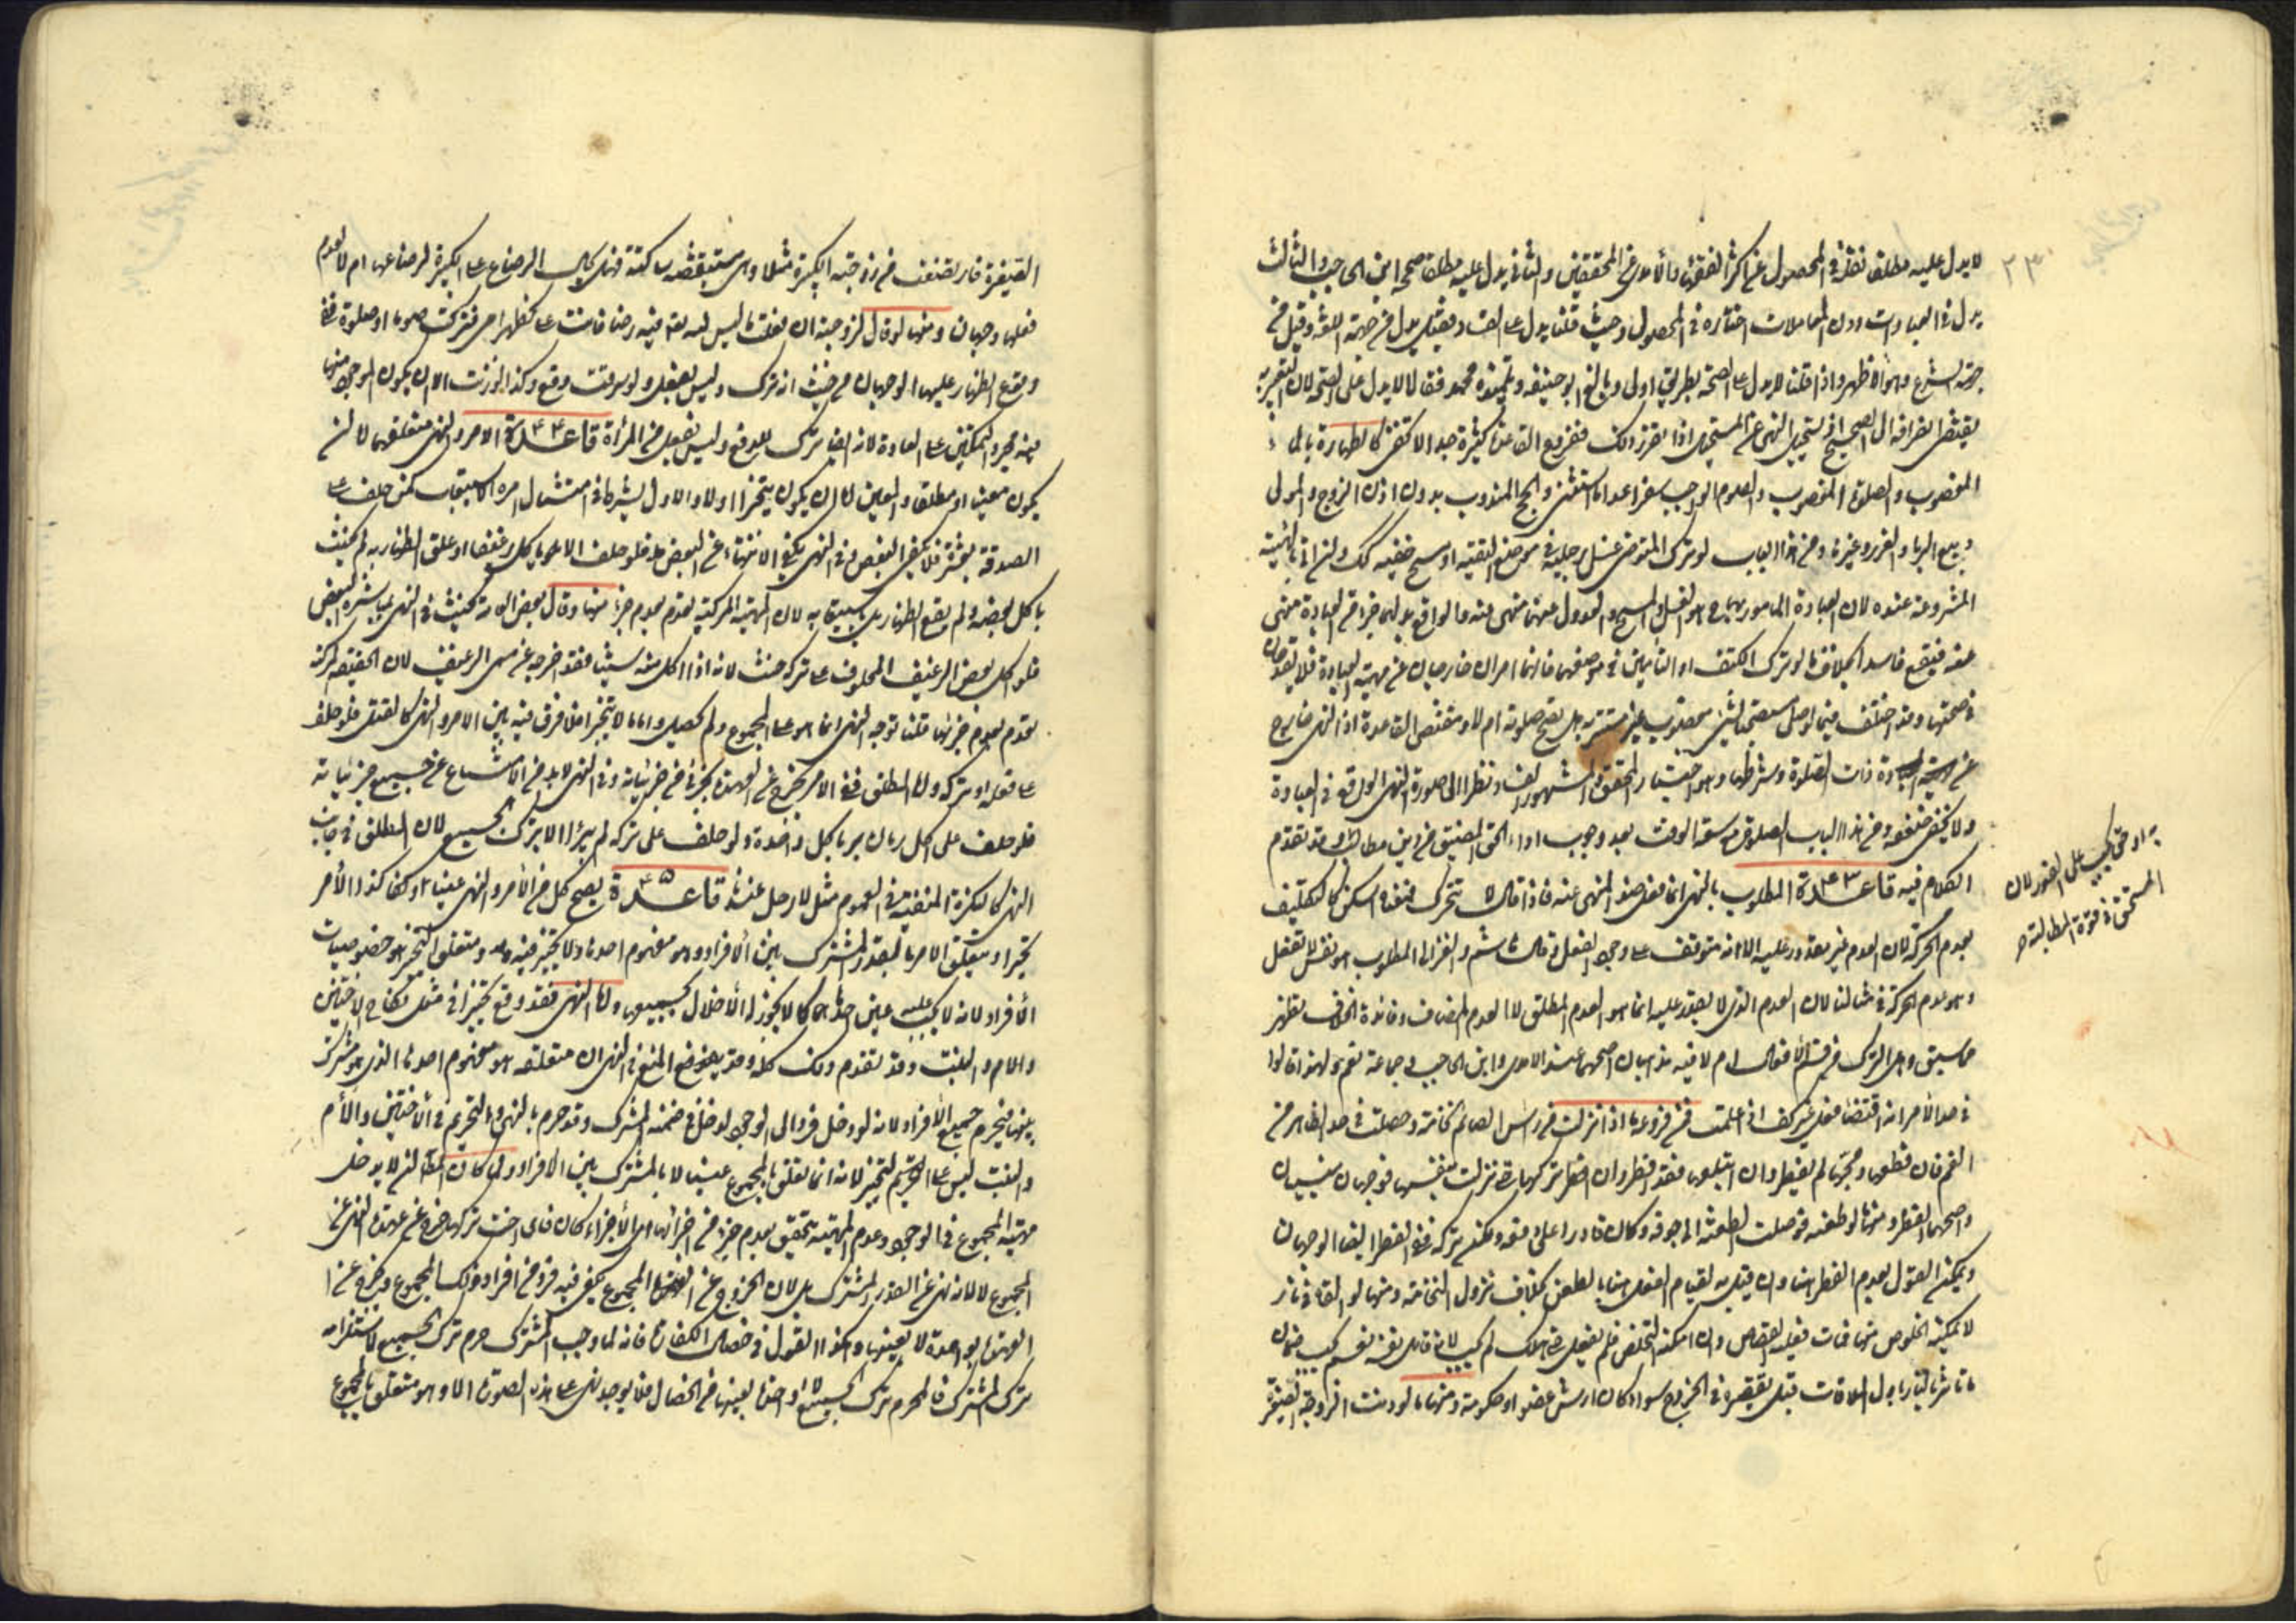 ٢٣
لا يدل عليه مطلقا نقله في المحصول عن اكثر الفقهاء والآمدي عن المحققين والثاني يدل عليه مطلقا صححه ابن الحاجب والثالث
يدل في العبادات دون المعاملات اختاره في المحصول وحيث قلنا يدل على الفساد فقيل يدل من جهة اللغة وقيل من
جهة الشرع وهو الاظهر واذا قلنا لا يدل على الصحة بطريق اولى وبالغ ابو حنيفة وتلميذه محمد فقالا لا يدل على الصحة لان التعبير به
يقتضي انصرافه الى الصحيح اذ يستحيل النهي عن المستحيل اذا تقرر ذلك ففروع القاعدة كثيرة جدا لا تخفى كالطهارة بالماء
المغصوب والصلوة في المغصوب والصوم الواجب سفرا عدا ما استثني والحج المندوب بدون اذن الزوج والمولى
وبيع الربا والغرر وغيره ومن هذا الباب لو ترك المتوضي غسل رجليه في موضع التقية او مسح خفيه كذلك وان اتى بالهيئة
المشروعة عنده لان العبادة المأمور بها ح هو الغسل والمسح والعدول عنهما منهي عنه فالواقع بدلهما جزء من العبادة منهي
عنه فيقع فاسدا بخلاف ما لو ترك الكتف او التأمين في موضعهما فانهما امران خارجان عن مهية العبادة فلا يقدحان
في صحتها وقد اختلف فيما لو صلى مستصحبا لشيء مغصوب غير مستتر به هل تصح صلوته ام لا ومقتضى القاعدة اذ النهي خارج
عن ذات الصلوة وشرطها وهو اختيار المحقق والمشهور نظرا الى صورة النهي الواقع في العبادة
ولا يخفى ضعفه ومن هذا الباب الصلوة مع سعة الوقت بعد وجوب اداء الحق المضيق من دين مطالب به وقد تقدم
به او حق يجب على الفور لان
المستحق في قوة المطالبة صح
الكلام فيه قاعدة ٤٣ المطلوب بالنهي انما هو فعل ضد المنهي عنه فاذا قال لا تتحرك فمعناه اسكن لا التكليف
بعدم الحركة لان العدم غير مقدور عليه الا انه متوقف على وجود الفعل وقال ابو هاشم والغزالي المطلوب هو نفس لا تفعل
وهو عدم الحركة في مثالنا لان العدم الذي لا يقدر عليه انما هو العدم المطلق لا العدم المضاف وفائدة الخلاف تظهر
مما سبق وهل الترك من قسم الافعال ام لا فيه مذهبان اصحهما عند الآمدي وابن الحاجب وجماعة نعم ولهذا قالوا
في حد الامر انه اقتضاء فعل غير كف اذا علمت فمن فروعه ما اذا نزلت من راس الصائم نخامة وحصلت في حد الظاهر من
الفم فان قطعها ومجها لم يفطر وان ابتلعها فقد افطر وان تركها حتى نزلت بنفسها فوجهان مبنيان
واصحهما الفطر ومنها لو طعنه فوصلت الطعنة الى جوفه وكان قادرا على دفعه ولكنه تركه ففي الفطر ايضا الوجهان
ويمكن القول بعدم الفطر هنا وان قيل به لقيام الفعل هنا بالطعن بخلاف نزول النخامة ومنها لو القاه في نار
لا يمكنه الخلوص منها فمات فعليه القصاص وان امكنه التخلص فلم يفعل حتى هلك لم يجب لانه قاتل نفسه نعم يجب ضمان
ما تأثر بالنار باول الملاقات قبل تقصيره في الخروج سواء كان ارش عضو او حكومة ومنها ما لو دبت الزوجة الصغيرة
الصغيرة فارتضعت من زوجته الكبيرة مثلا وهي مستيقظة ساكتة فهل يحال الرضاع على الكبيرة لرضاعها ام لا لعدم
فعلها وجهان ومنها لو قال لزوجته ان فعلت ما ليس لله تعالى فيه رضا فانت علي كظهر امي فتركت صوما او صلوة ففي
وقوع الظهار عليها الوجهان من حيث انه ترك وليس بفعل ولو سرقت وقع وكذا لو زنت الا ان يكون الموجود منها
فيه مجرد التمكين على العادة لانه ايضا ترك للدفع وليس بفعل من المرأة قاعدة ٤٤ الامر والنهي متعلقهما لا ان
يكون معينا او مطلقا والمعين اما ان يكون يتجزا اولا والاول يشترط في امتثال امره الاستيعاب كمن حلف على
الصدقة بعشرة فلا يكفي البعض وفي النهي يكفي الانتهاء عن البعض فلو حلف ان لا يأكل رغيفا او علق الظهار به لم يحنث
باكل بعضه ولم يقع الظهار بل يستبقيه لان المهية المركبة تعدم بعدم جزء منها وقال بعض العامة يحنث في النهي بمباشرة البعض
فلو اكل بعض الرغيف المحلوف على تركه حنث لانه اذا اكل منه شيئا فقد اخرجه عن مسمى الرغيف لان الحقيقة المركبة
تعدم بعدم جزئها قلنا توجه النهي انما هو على المجموع ولم يحصل واما ما لا يتجزا فلا فرق فيه بين الامر والنهي كالقتل فلو حلف
على فعله او تركه واما المطلق ففي الامر يخرج عن العهدة بجزئي من جزئياته وفي النهي لا بد من الامتناع عن جميع جزئياته
فلو حلف على اكل رمان بر بأكل واحدة ولو حلف على تركه لم يبرأ الا بترك الجميع لان المطلق في جانب
النهي كالنكرة المنفية في العموم مثل لا رجل عندنا قاعدة ٤٥ يصح كل من الامر والنهي عينا وكذا الامر
تخييرا ويتعلق الامر ح بالقدر المشترك بين الافراد وهو مفهوم احدها ولا تخيير فيه ومتعلق التخيير هو خصوصيات
الافراد لانه لا يجب عليه عين احدها كما لا يجوز له الاخلال بجميعها واما النهي فقد وقع تخييرا في مثل نكاح الاختين
والام والبنت وقد تقدم ذلك كله وقد يعرض المنع في النهي ان متعلقه هو مفهوم احدها الذي هو مشترك
بينها فيحرم جميع الافراد لانه لو دخل فرد الى الوجود لدخل في ضمنه المشترك وقد حرم بالنهي والتحريم في الاختين والام
والبنت ليس على التخيير لانه انما تعلق بالمجموع عينا لا بالمشترك بين الافراد ولما كان المطلوب ان لا يدخل
مهية المجموع في الوجود وعدم المهية يتحقق بعدم جزء من اجزائها اي الاجزاء كان فاي اخت تركها خرج عن عهدة النهي عن
المجموع لا لانه نهى عن القدر المشترك بل لان الخروج عن المجموع يكفي فيه فرد من افراد ذلك المجموع فيخرج عن
العهدة بواحدة لا بعينها وهكذا القول في خصال الكفارة فانه لما وجب المشترك حرم ترك الجميع لاستلزامه
ترك المشترك فالمحرم ترك الجميع لا واحدة بعينها من الخصال فلا يوجد نهي على هذه الصورة الا وهو متعلق بالمجموع